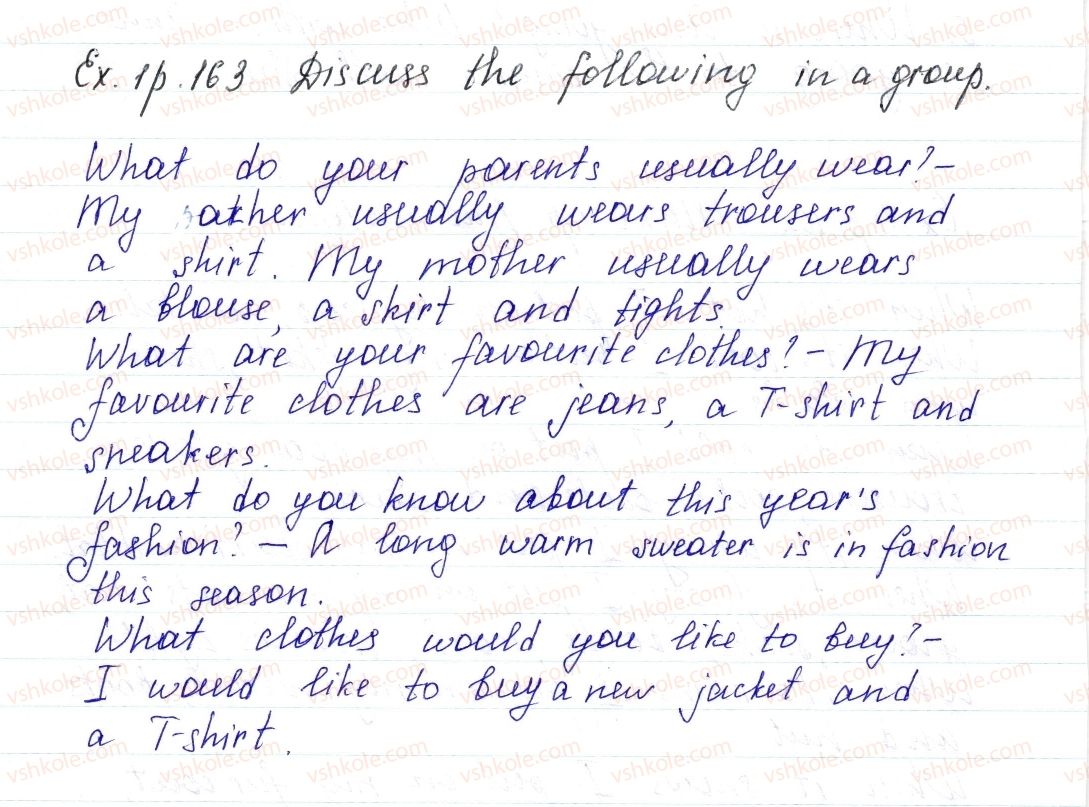 Ex. 1 p. 163 Discuss the following in a group.
What do your parents usually wear? –
My father usually wears trousers and
a shirt. My mother usually wears
a blouse, a skirt and tights.
What are your favourite clothes? – My
favourite clothes are jeans, a T-shirt and
sneakers.
What do you know about this year's
fashion? – A long warm sweater is in fashion
this season.
What clothes would you like to buy? –
I would like to buy a new jacket and
a T-shirt.